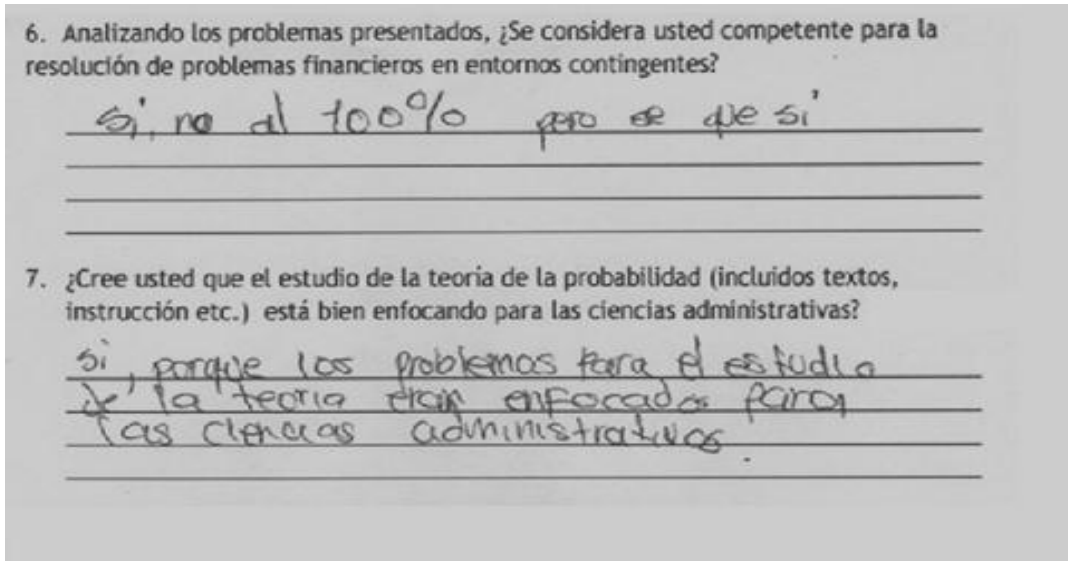 6. Analizando los problemas presentados, ¿Se considera usted competente para la
resolución de problemas financieros en entornos contingentes?
si, no al 100% pero se que si
7. ¿Cree usted que el estudio de la teoría de la probabilidad (incluidos textos,
instrucción etc.) está bien enfocando para las ciencias administrativas?
si, porque los problemas para el estudio
de la teoria eran enfocados para
las ciencias administrativas.